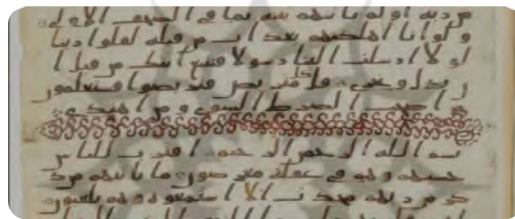 من ربه اولم تاتهم بينه ما في الصحف الاولى
ولو انا اهلكنهم بعذاب من قبله لقالوا ربنا
لولا ارسلت الينا رسولا فنتبع ايتك من قبل ا
ن نذل ونخزى قل كل متربص فتربصوا فستعلمون
من اصحب الصرط السوي ومن اهتدى
بسم الله الرحمن الرحيم اقترب للناس
حسبهم وهم في غفله معرضون ما ياتيهم من ذ
كر من ربهم محدث الا استمعوه وهم يلعبون